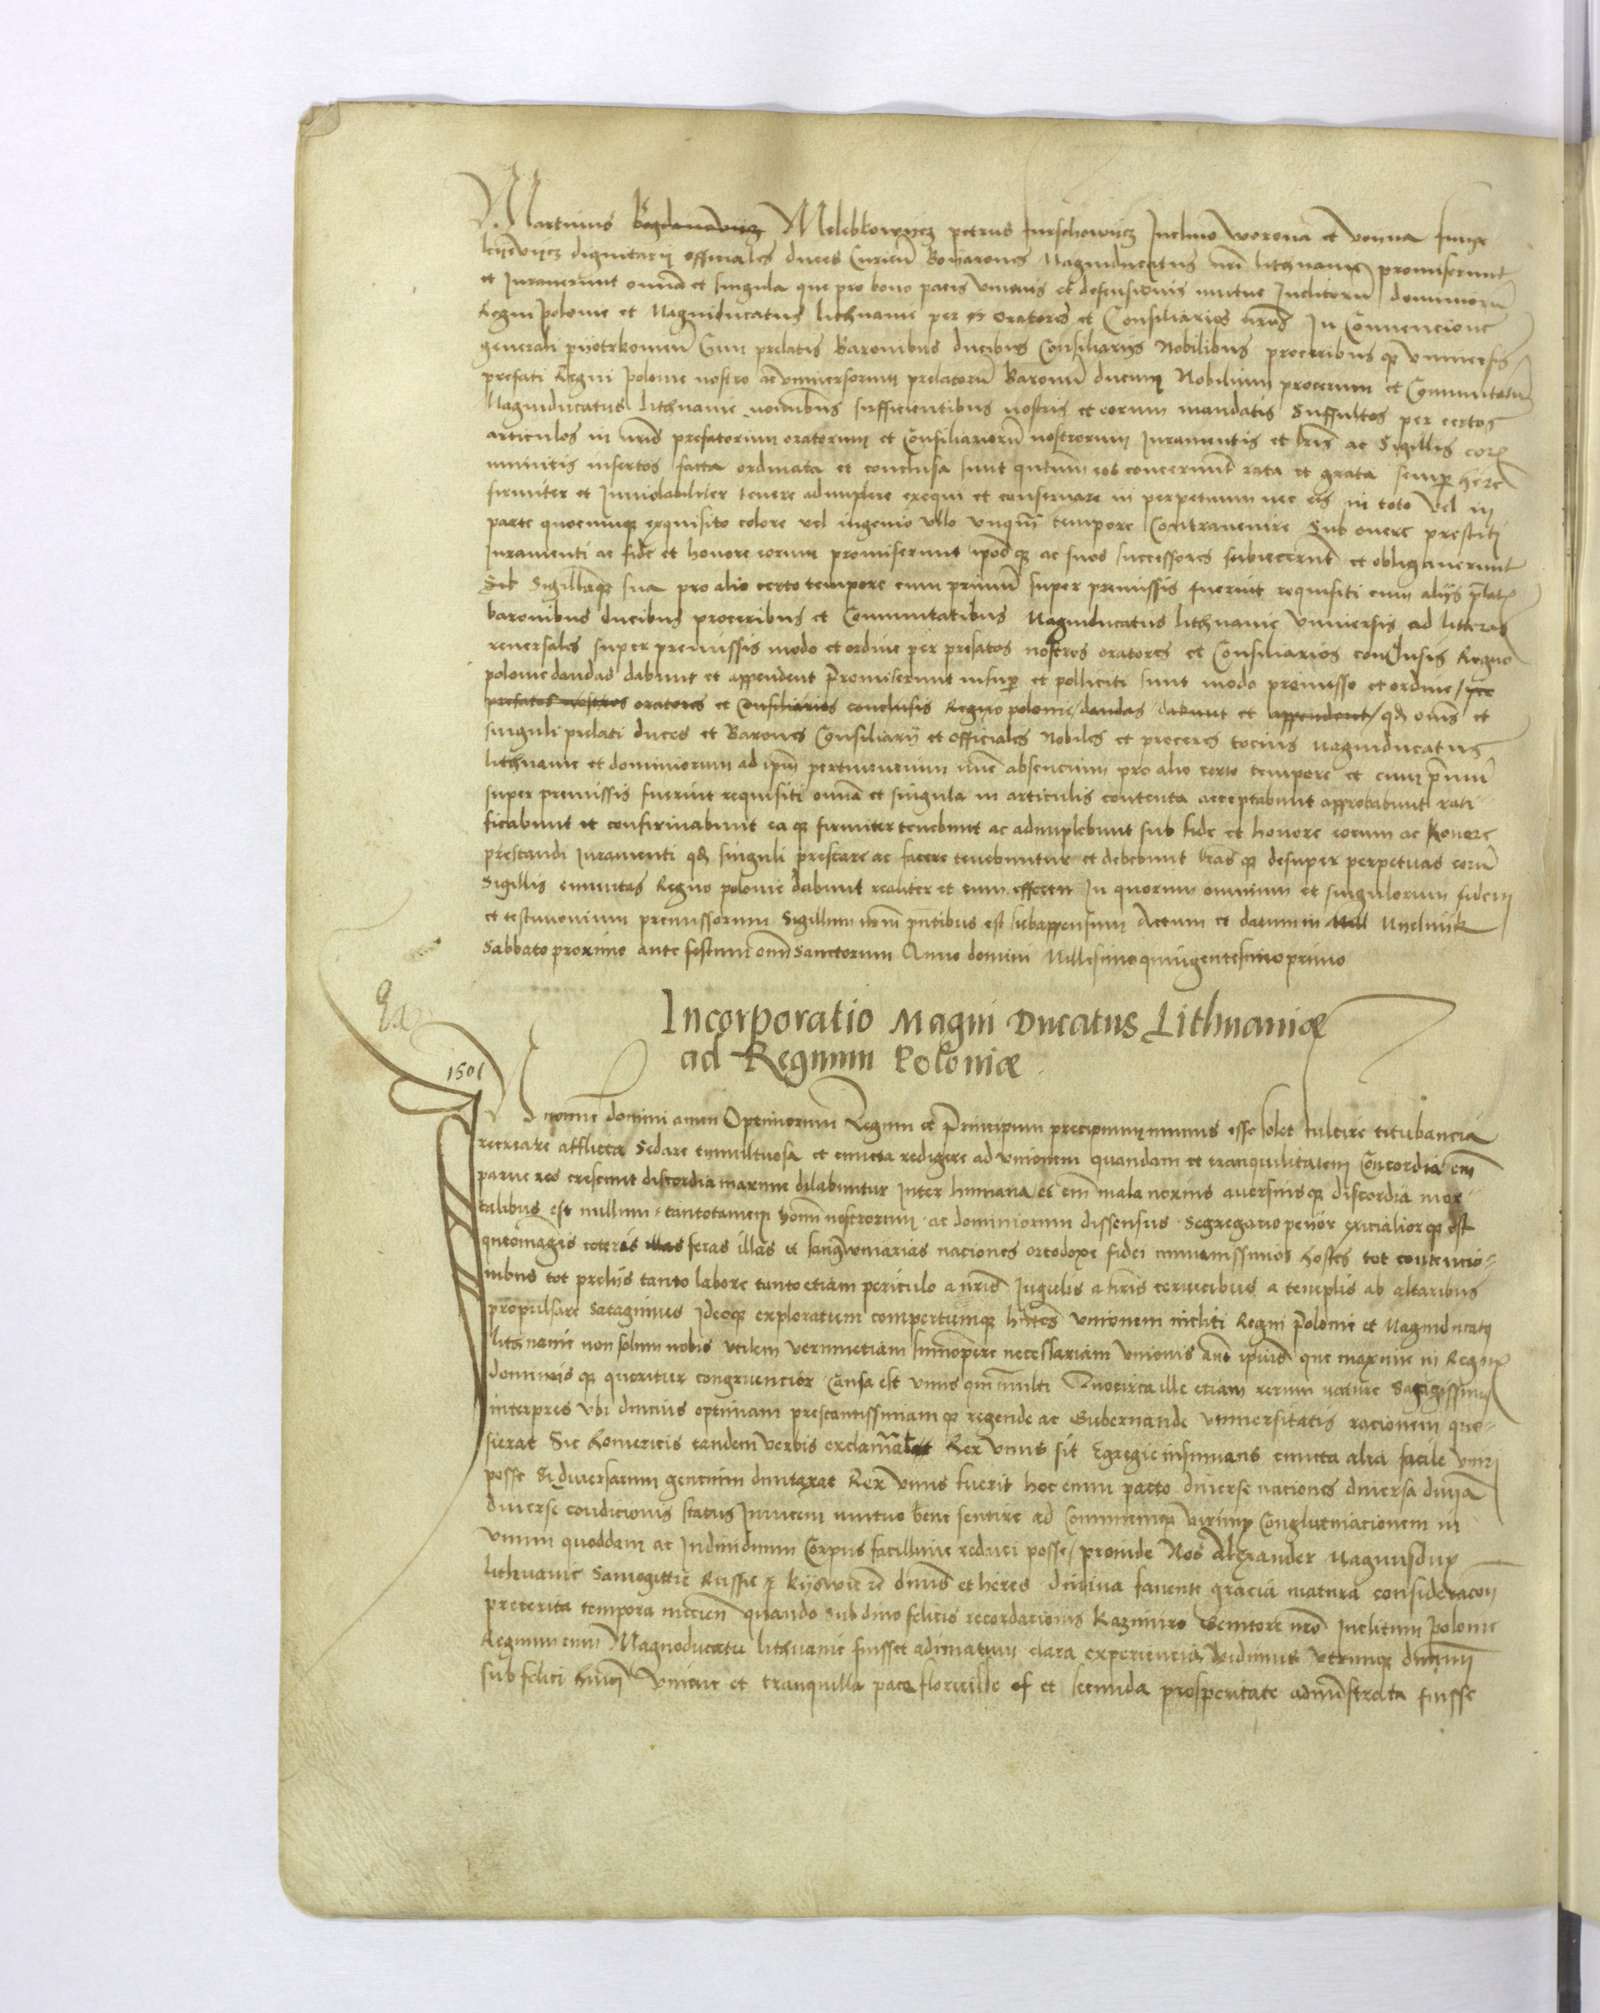 Martinus Bogdanowicz Melebkowycz petrus Jurschowicz Juchno worona et vonna
dignitarij officiales duces Curien Boyarones Magniducatus nri lithuanie promiserunt
et Jurauerunt omnia et singula que pro bono pacis vnionis et defensionis mutue Inclitorum dominiorum
Regni polonie et Magniducatus lithuanie per oratores et Consiliarios nros In Convencione
generali pyotrkowien Cum prelatis Baronibus ducibus Consiliarijs Nobilibus proceribus qz vniuersis
prefati Regni polonie nostro ac vniuersorum prelatorum Baronum ducum Nobilium procerum et Communitatum
Magniducatus lithuanie nominibus sufficientibus nostris et eorum mandatis Suffultos per certos
articulos in nris prefatorum oratorum et Consiliariorum nostrorum Juramentis et lris ac Sigillis eorz
munitis insertos facta ordinata et conclusa sunt qntum eos concernunt rata et grata semper here
firmiter et Inuiolabiliter tenere adimplere exequi et conseruare in perpetuum nec eis in toto vel in
parte quocumqz exquisito colore vel ingenio vllo vnqm tempore Contrauenire Sub onere prestiti
Juramenti ac fide et honore eorum promiserunt ipos qz ac suos successores subiecerunt et obligauerunt
Sic Sigillaqz sua pro alio certo tempore cum primum super premissis fuerint requisiti cum alijs plats
baronibus ducibus proceribus et Communitatibus Magniducatus lithuanie vniuersis ad litteras
reuersales super premissis modo et ordine per prefatos nostros oratores et Consiliarios conclusis Regno
polonie dandas dabunt et appendent Promiserunt insup et polliciti sunt modo premisso et ordine per
prefatos nostros oratores et Consiliarios conclusis Regno polonie dandas dabunt et appendent qd omnes et
singuli prelati duces et Barones Consiliarij et officiales Nobiles et proceres tocius Magniducatus
lithuanie et dominiorum ad ipm pertinencium nunc absencium pro alio certo tempore et cum primum
super premissis fuerint requisiti omnia et singula in articulis contenta acceptabunt approbabunt rati
ficabunt et confirmabunt ea qz firmiter tenebunt ac adimplebunt sub fide et honore eorum ac honore
prestandi Juramenti qd singuli prestare ac facere tenebuntur et debebunt lras qz desuper perpetuas eorum
Sigillis communitas Regno polonie dabunt realiter et cum effectu In quorum omnium et singulorum fidem
et testimonium premissorum Sigillum nrum pntibus est subappensum Actum et datum in Mell Myelnik
Sabbato proximo ante festum omnium Sanctorum Anno domini Millesimo quingentesimo primo
Incorporatio Magni Ducatus Lithuaniæ
ad Regnum Poloniæ
1501
In nomine domini amen Optimorum Regum et Principum precipuum munus esse solet fulcire titubancia
recreare afflicta Sedare tumultuosa et cuncta redigere ad vnionem quandam et tranquilitatem Concordia em
parue res crescunt discordia maxime dilabuntur Inter humana et em mala noxius aversius qz discordia mor-
talibus est nullum tantotamen homi nostrorum ac dominiorum dissensus Segregacio peiior exicialior qz est
qntomagis ceteras illas feras illas et sangwinarias naciones ortodoxe fidei inimicissimos hostes tot contencio-
nibus tot prelijs tanto labore tanto etiam periculo a nris Jugulis a nris ceruicibus a templis ab altaribus
propulsare satagimus Ideoqz exploratum compertumqz hntes vnionem incliti Regni Polonie et Magniducatus
lithuanie non solum nobis vtilem verumetiam summopere necessariam vnionis aut ipius que maxime in Regnis
dominijs qz queritur congruencior Causa est vnus qm multi Quocirca ille etiam rerum nature Sagacissimus
interpres vbi diucius optimam prestantissimam qz regende ac Gubernande vniuersitatis racionem que-
sierat Sic Homericis tandem verbis exclamabat Rex vnus sit Egregie insinuans cuncta alia facile vniri
posse Si diuersarum gencium dumtaxat Rex vnus fuerit hoc enim pacto diuerse naciones diuersa dnia
diuerse condicionis status Inuicem mutuo bene sentire ad Communem virium Conglutinacionem in
vnum quoddam ac Indiuiduum Corpus facillime reduci posse proinde Nos Alexander Magnusdux
lithuanie Samogittie Russie Kyowie zc dnus et heres diuina fauenti gracia matura consideracon
preterita tempora metien quando sub diuo felicis recordacionis Kazimiro Genitore nro Inclitum polonie
Regnum cum Magnoducatu lithuanie fuisset adimatum clara experiencia vidimus vtrumqz dnium
sub felici vnione et tranquilla pace floruisse et secunda prosperitate adminstrata fuisse